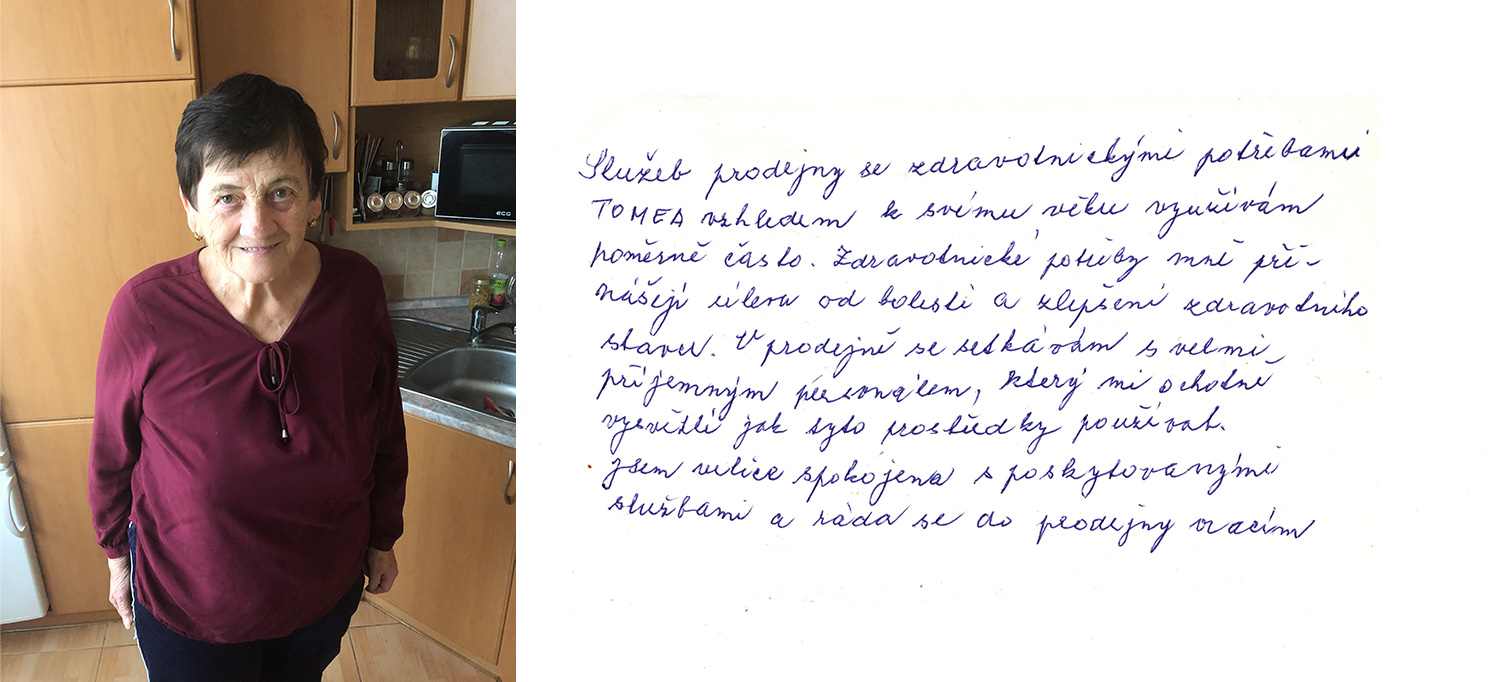 ECG
Služeb prodejny se zdravotnickými potřebami
TOMEA vzhledem k svému věku využívám
poměrně často. Zdravotnické potřeby mně při-
nášejí úlevu od bolesti a zlepšení zdravotního
stavu. V prodejně se setkávám s velmi
příjemným personálem, který mi ochotně
vysvětlí jak tyto prostředky používat.
Jsem velice spokojena s poskytovanými
službami a ráda se do prodejny vracím